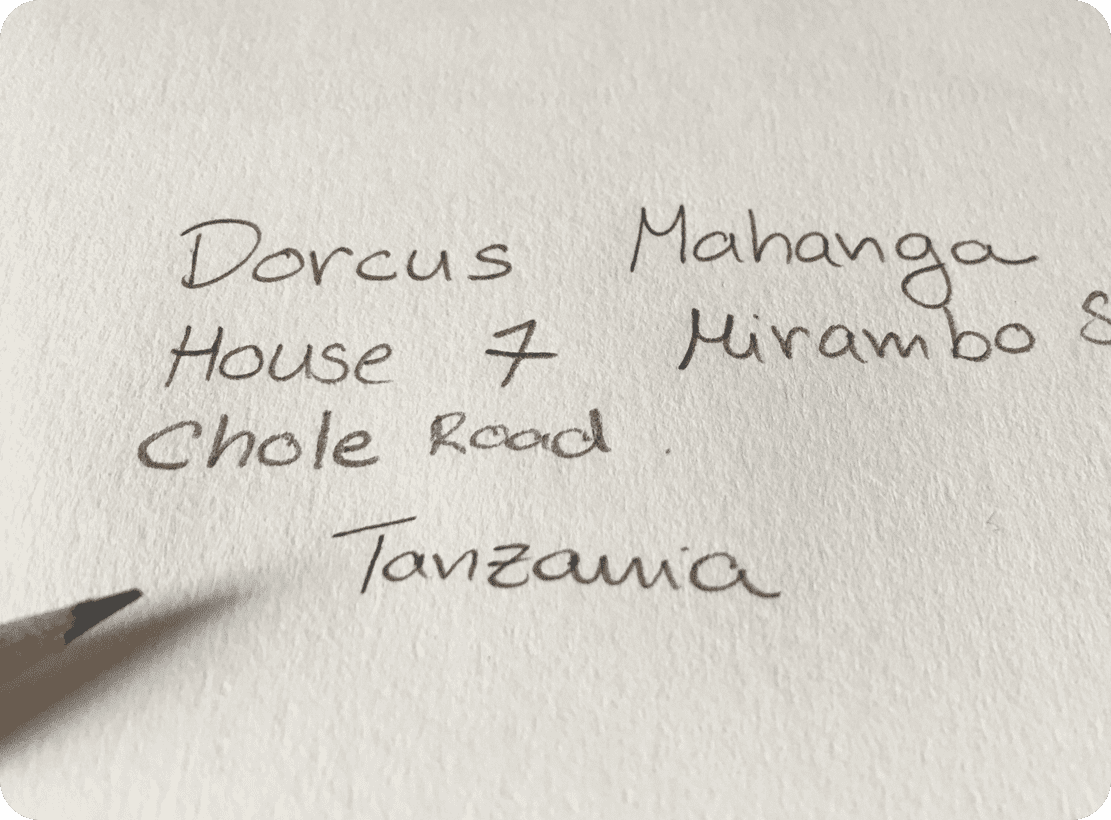 Dorcus Mahanga
House 7 Mirambo S
Chole Road.
Tanzania